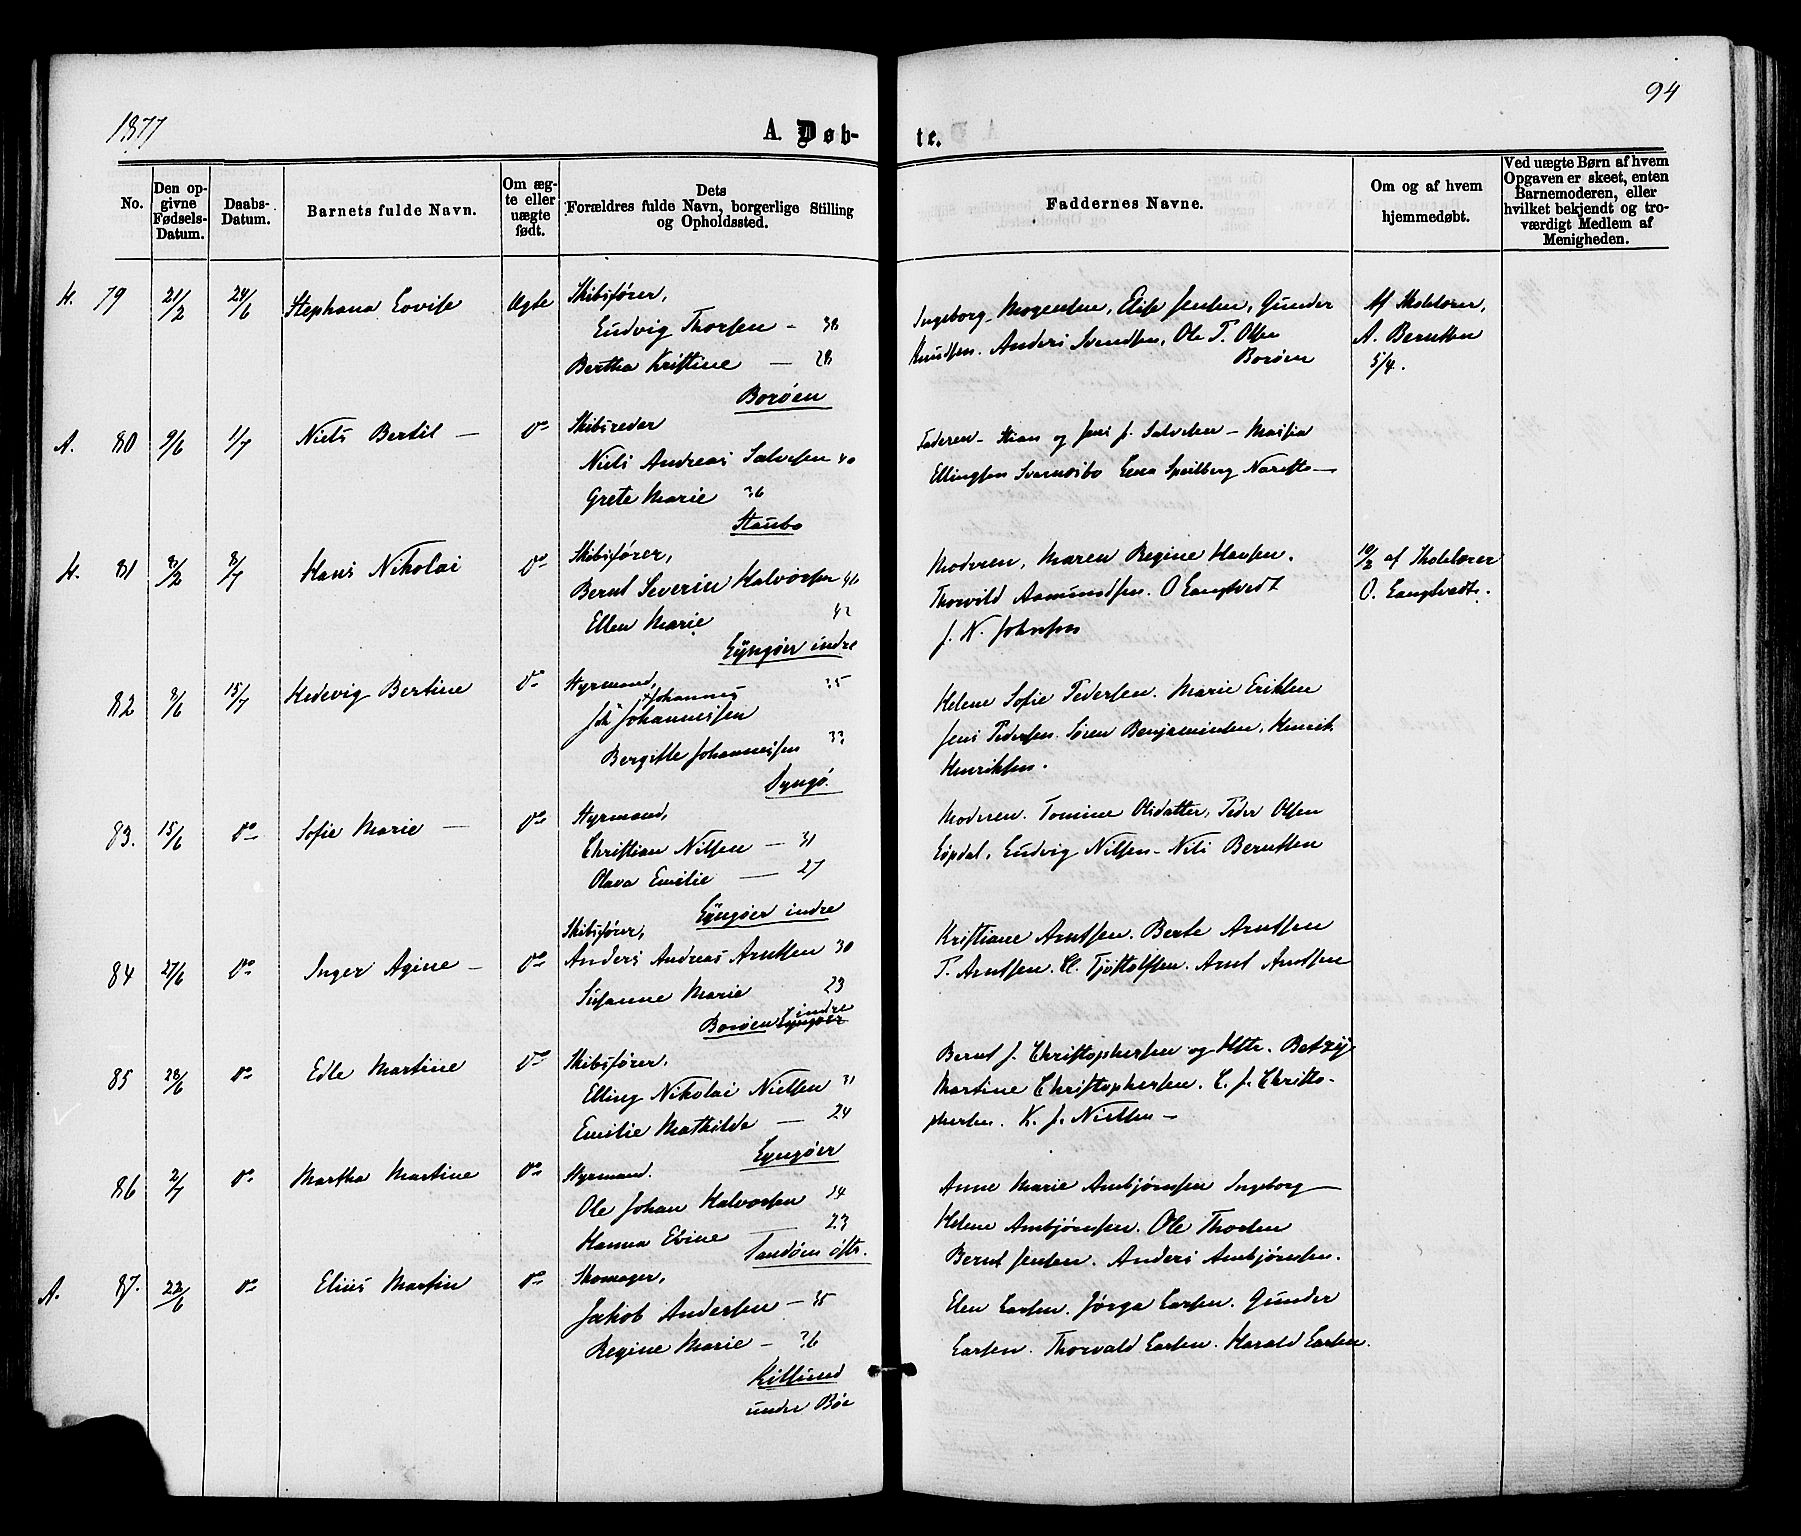 1877
94
A. Døb-
te.
No.
Den op-
givne
Fødsels-
Datum.
Daabs-
Datum.
Barnets fulde Navn.
Om æg-
te eller
uægte
født.
Dets
Forældres fulde Navn, borgerlige Stilling
og Opholdssted.
Faddernes Navne.
Om og af hvem
hjemmedøbt.
Ved uægte Børn af hvem
Opgaven er skeet, enten
Barnemoderen, eller
hvilket bekjendt og tro-
værdigt Medlem af
Menigheden.
H. 79 21/2 24/6 Stephana Lovise Ægte Skibsfører,
Ludvig Thorsen - 38
Bertha Kristine — 28
Borøen
Ingeborg Mogensen, Elise Jensen, Gunder
Knudsen. Anders Svendsen, Ole T. Olsen
Borøen
Af Skolelærer,
A. Berntsen
5/4.
A. 80 9/6 1/7 Niels Bertil — Do Skibsreder
Niels Andreas Salvesen 40
Grete Marie 36
Staubo
Faderen - Stian og Jens J. Salvesen - Maspia
Ellingsen Svernsbo Lena Speilberg Narestø —
H. 81 3/2 8/7 Hans Nikolai Do Skibsfører,
Bernt Severin Halvorsen 46
Ellen Marie 42
Lyngøer indre
Moderen, Maren Regine Hansen.
Thorvild Aamundsen. O Langtvedt
J. N. Johnsen
10/2 af Skolelærer
O. Langtvedt.
82 8/6 15/7 Hedevig Bertine Do Styrmand, 35
Johannes
Johannessen
Bergitte Johannessen 33
Lyngø.
Helene Sofie Pedersen. Marie Eriksen
Jens Pedersen. Søren Benjaminsen, Henrik
Henriksen.
83. 15/6 Do Sofie Marie — Do Styrmand,
Christian Nilsen — 31
Olava Emilie — 27
Lyngøer indre
Moderen. Tomine Olsdatter, Peder Olsen
Løpdal, Ludvig Nilsen - Nils Berntsen
84 27/6 Do Inger Agine — Do Skibsfører,
Anders Andreas Arntsen 30
Susanne Marie 23
indre
Borøen Lyngøer
Kristiane Arntsen. Berte Arntsen
T. Arntsen. Chr. Tjøstolfsen. Arnt Arntsen
85 28/6 Do Edle Martine Do Skibsfører,
Elling Nikolai Nielsen 31
Emilie Mathilde — 24
Lyngøer
Bernt J. Christophersen og Hstr. Betzy
Martine Christophersen. C. J. Christo-
phersen. K. J. Nielsen —
86 2/7 Do Martha Martine Do Styrmand.
Ole Johan Halvorsen 24
Hanna Elvine — 23
Sandøen østr.
Anne Marie Ambjørnsen Ingeborg
Helene Ambjørnsen. Ole Thorsen
Bernt Jensen. Anders Ambjørnsen.
A. 87. 22/6 Do Elius Martin Do Skomager,
Jakob Andersen — 35
Regine Marie — 36
Kilsund
under Bøe
Elen Larsen. Jørga Larsen. Gunder
Larsen. Thorvald Larsen. Harald Larsen.